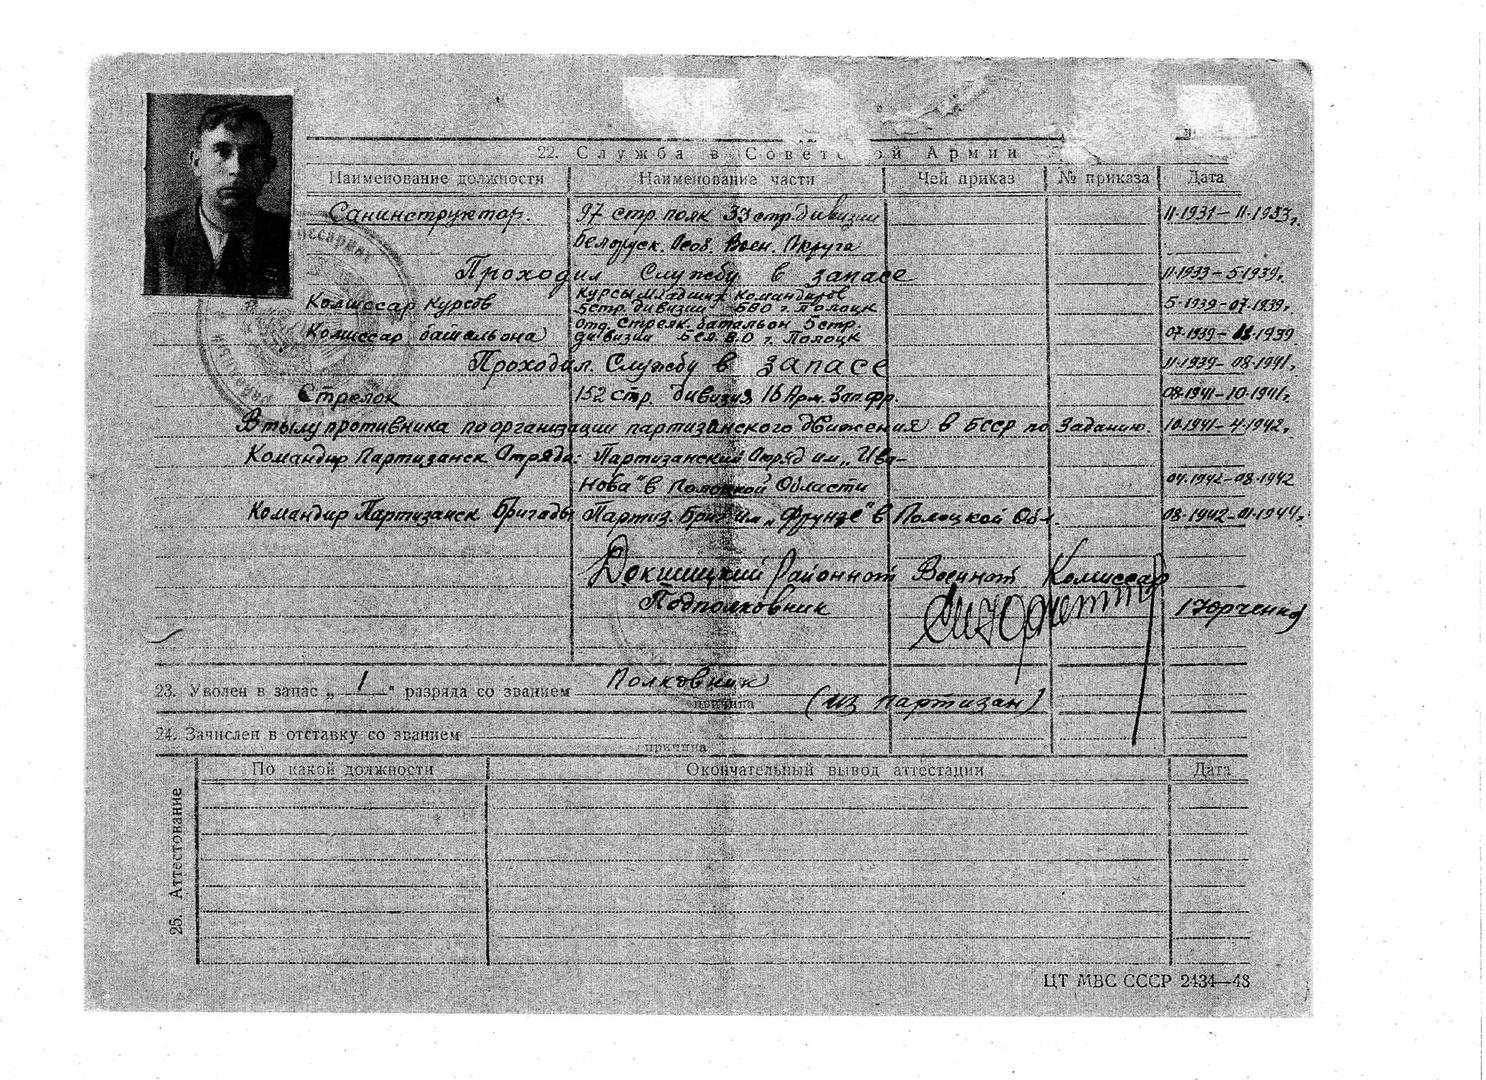 22. Служба в Советской Армии
Наименование должности Наименование части Чей приказ № приказа Дата
Санинструктор. 97 стр. полк 33 стр. дивизии 11.1931 – 11.1933 г.
белорусск. Особ. Воен. Округа
Проходил Службу в запасе 11.1933 – 5.1939 г.
Комиссар Курсов Курсы младших Командиров 5.1939 – 07.1939 г.
5 стр. дивизии БВО г. Полоцк
Комиссар батальона отд. стрелк. батальон 5 стр. 07.1939 – 11.1939
дивизии Бел. В.О г. Полоцк
Проходил Службу в запасе 11.1939 – 08.1941 г.
Стрелок 152 стр. дивизия 16 Арм. Зап. фр. 08.1941 – 10.1941 г.
В тылу противника по организации партизанского движения в БССР по Заданию. 10.1941 – 4.1942 г.
Командир Партизанск Отряда: Партизанский Отряд им „Ива-
нова" в Полоцкой Области 04.1942 – 08.1942
Командир Партизанск Бригады Партиз. Бриг им „Фрунзе" в Полоцкой Обл. 08.1942 – 01.1944 г.
Докшицкий Районной Военной Комиссар
Подполковник /Юрченко/
23. Уволен в запас „ 1 " разряда со званием Полковник
причина (из партизан)
24. Зачислен в отставку со званием
причина
25. Аттестование
По какой должности Окончательный вывод аттестации Дата
ЦТ МВС СССР 2434—48